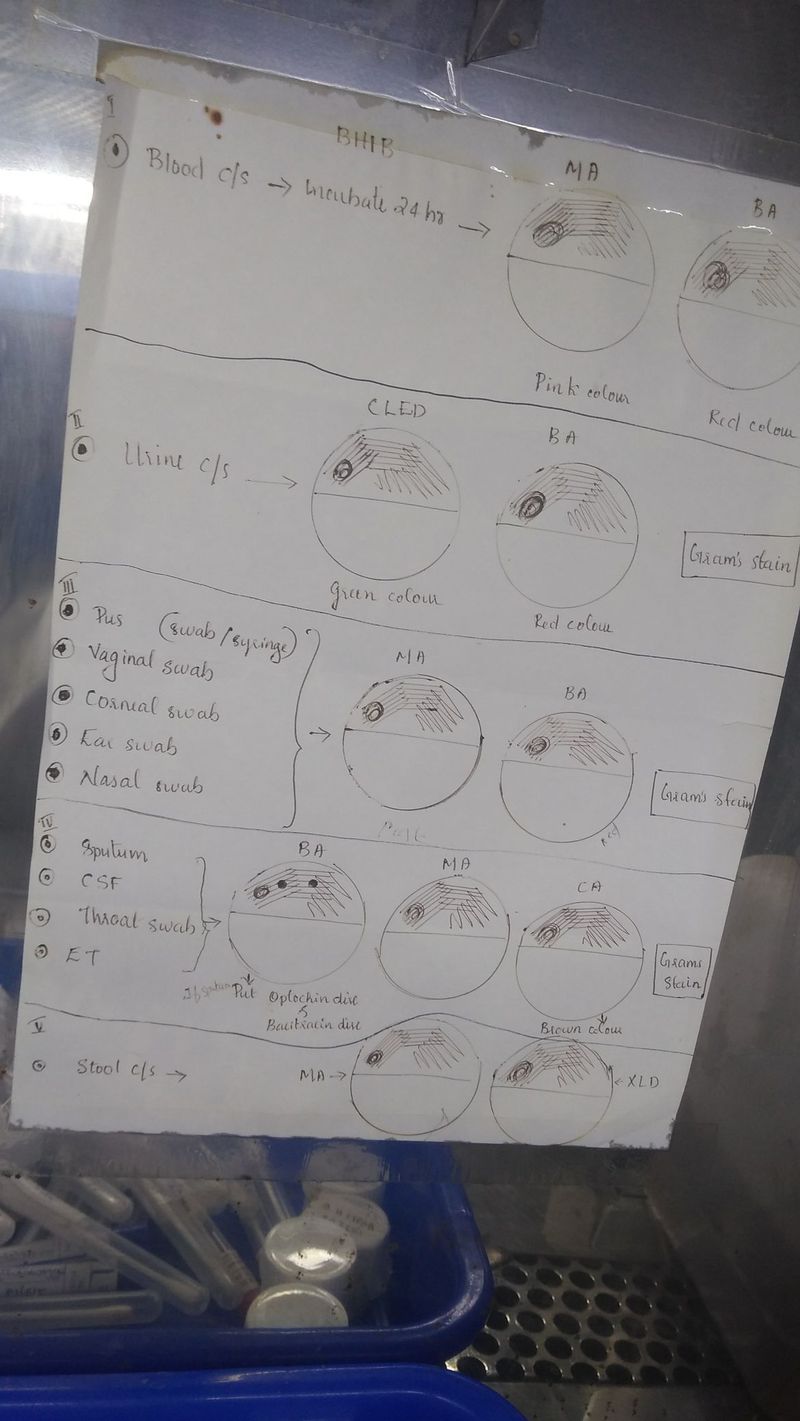 I
BHIB
MA
BA
Blood c/s → incubate 24 hr →
Pink colour
Red colour
II
CLED
BA
Urine c/s →
Gram's stain
Green colour
Red colour
III
Pus (swab/syringe)
Vaginal swab
Corneal swab
Ear swab
Nasal swab
→
MA
BA
Gram's stain
Red
IV
Sputum
CSF
Throat swab
ET
→
BA
MA
CA
Grams
Stain
If sputum Put Optochin disc
&
Bacitracin disc
Brown colour
V
Stool c/s →
MA →
← XLD